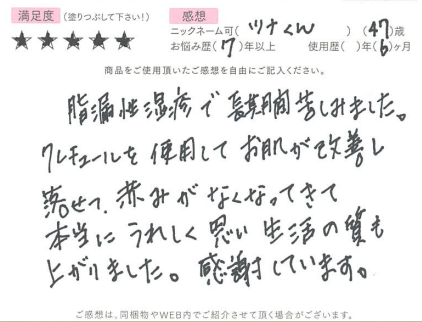 満足度(塗りつぶして下さい!) 感想
★★★★★
ニックネーム可(ツナくん)(47)歳
お悩み歴(7)年以上 使用歴( )年(6)ヶ月
商品をご使用頂いたご感想を自由にご記入ください。
脂漏性湿疹で長期間苦しみました。
クレチュールを使用してお肌が改善し
落せて、赤みがなくなってきて
本当にうれしく思い生活の質も
上がりました。感謝しています。
ご感想は、同梱物やWEB内でご紹介させて頂く場合がございます。